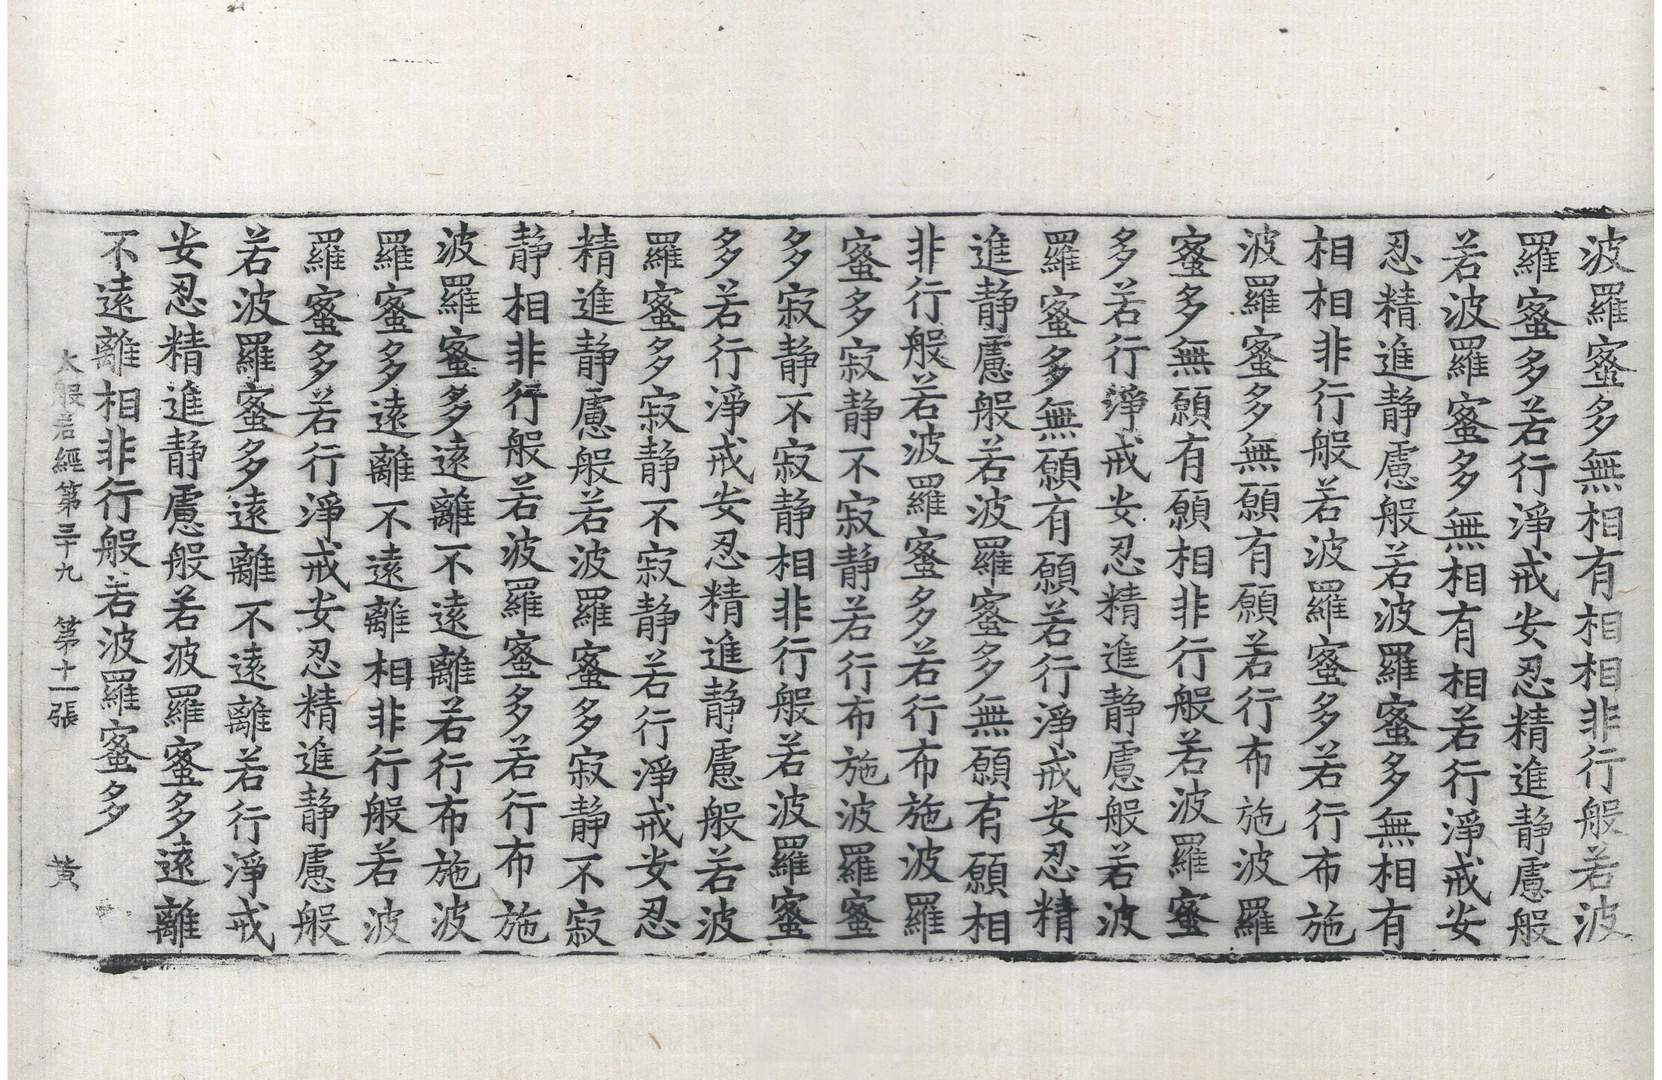 波羅蜜多無相有相相非行般若波
羅蜜多若行淨戒安忍精進静慮般
若波羅蜜多無相有相若行淨戒安
忍精進静慮般若波羅蜜多無相有
相相非行般若波羅蜜多若行布施
波羅蜜多無願有願若行布施波羅
蜜多無願有願相非行般若波羅蜜
多若行淨戒安忍精進静慮般若波
羅蜜多無願有願若行淨戒安忍精
進静慮般若波羅蜜多無願有願相
非行般若波羅蜜多若行布施波羅
蜜多寂静不寂静若行布施波羅蜜
多寂静不寂静相非行般若波羅蜜
多若行淨戒安忍精進静慮般若波
羅蜜多寂静不寂静若行淨戒安忍
精進静慮般若波羅蜜多寂静不寂
静相非行般若波羅蜜多若行布施
波羅蜜多遠離不遠離若行布施波
羅蜜多遠離不遠離相非行般若波
羅蜜多若行淨戒安忍精進静慮般
若波羅蜜多遠離不遠離若行淨戒
安忍精進静慮般若波羅蜜多遠離
不遠離相非行般若波羅蜜多
大般若經第三十九 第十一張 黃